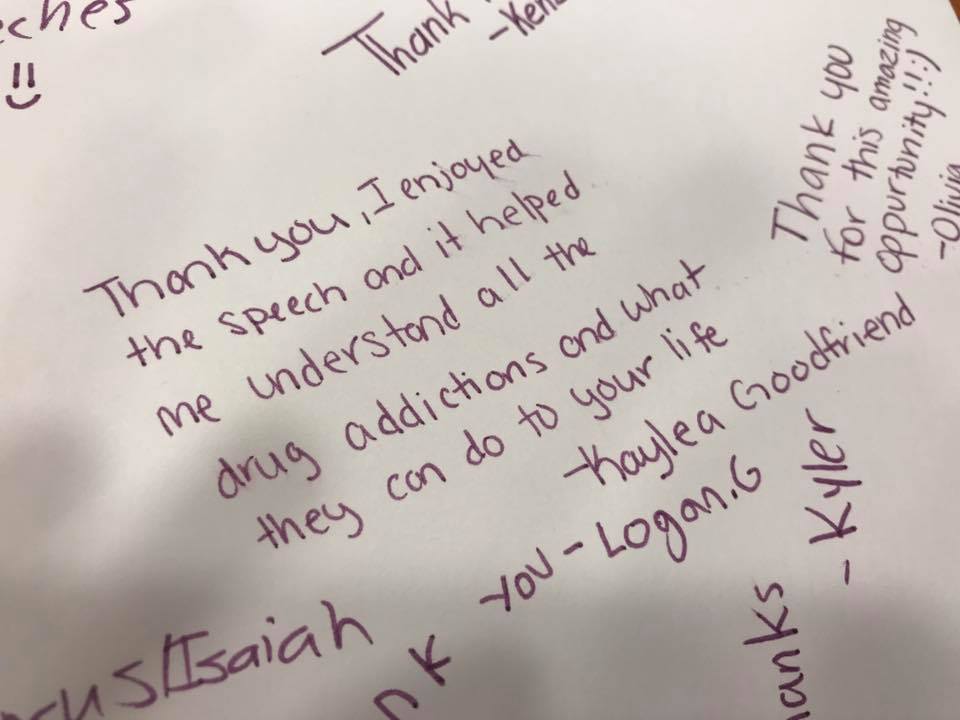 Thank
Thank you, I enjoyed
the speech and it helped
me understand all the
drug addictions and what
they can do to your life
-Kaylea Goodfriend
Thank you
for this amazing
oppurtunity!!:)
-Olivia
you - Logan.G
- Kyler
/Isaiah